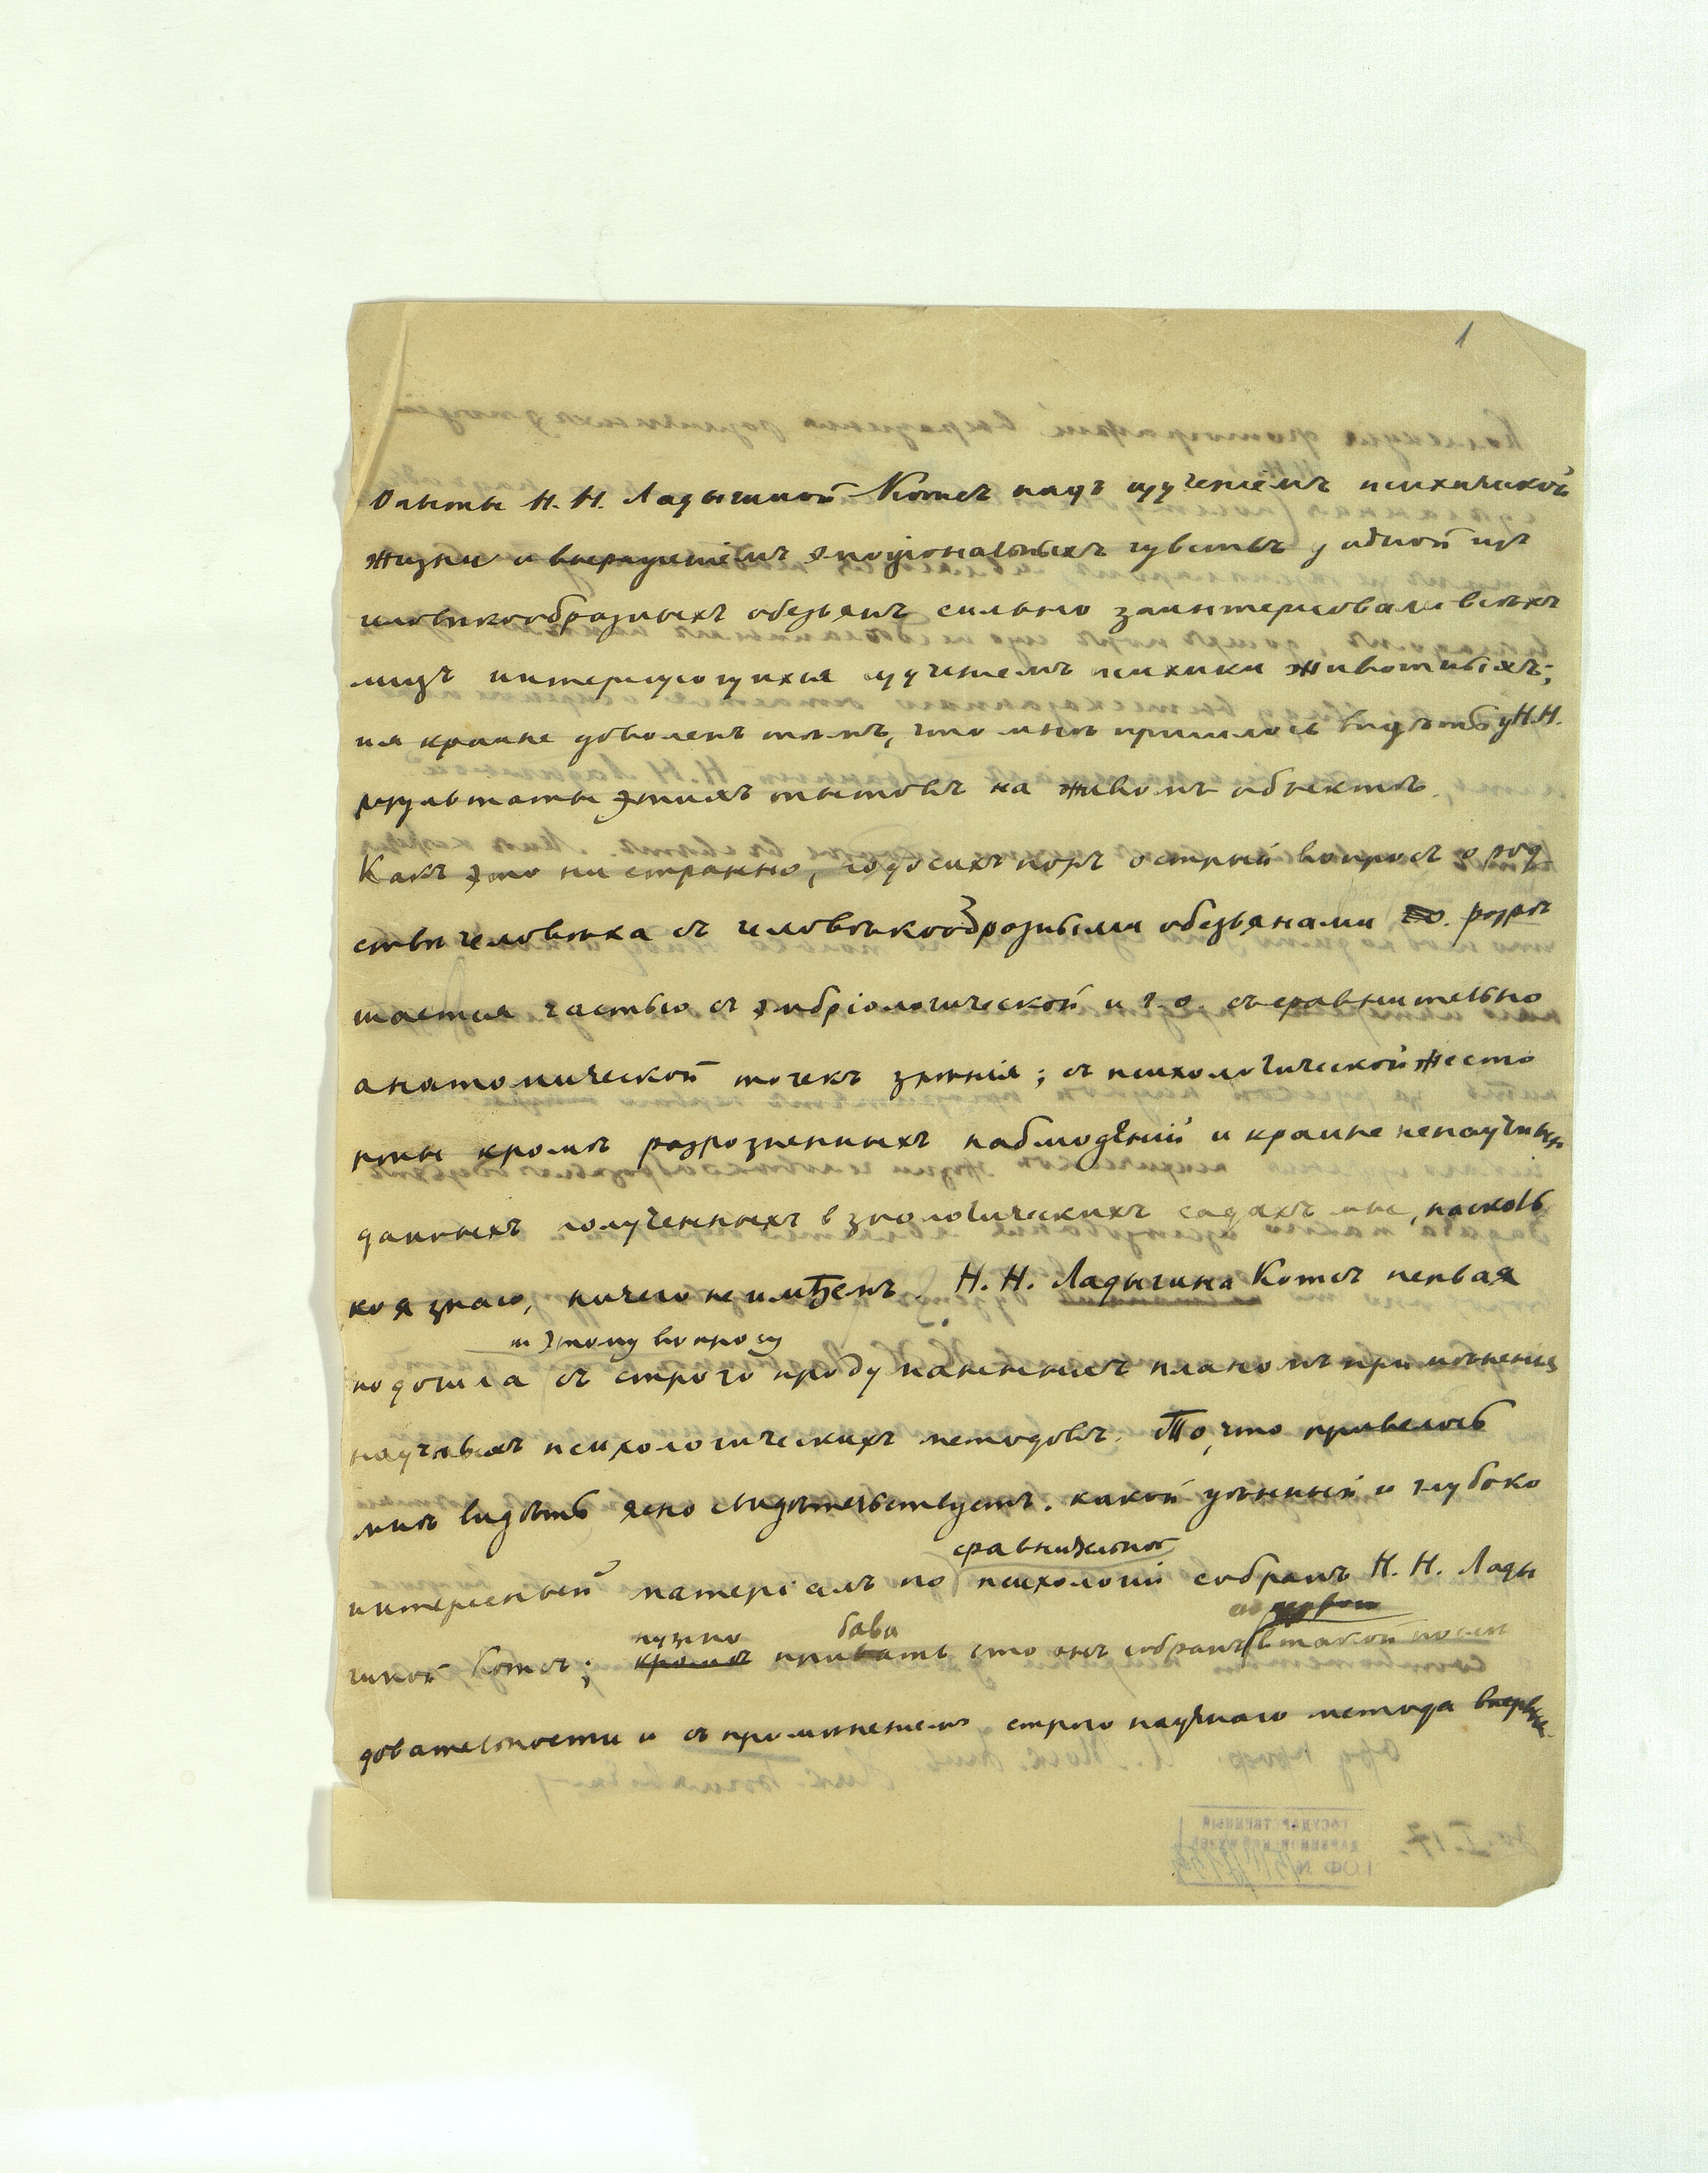 1
Опыты Н. Н. Ладыгиной Котсъ надъ изученіемъ психической
жизни и выраженіемъ эмоціональныхъ чувствъ у одной изъ
человѣкообразныхъ обезьянъ сильно заинтересовали всѣхъ
лицъ интересующихся изученіемъ психики животныхъ;
и я крайне доволенъ тѣмъ, что мнѣ пришлось видѣть у Н. Н.
результаты этихъ опытовъ на живомъ объектѣ.
Какъ это ни странно, до сихъ поръ острый вопросъ о род
ствѣ человѣка съ человѣкообразными обезьянами разрѣ
шается частью съ эмбріологической и г. о. съ сравнительно
анатомической точекъ зрѣнія; съ психологической же сто
роны кромѣ разрозненныхъ наблюденій и крайне ненаучныхъ
данныхъ полученныхъ в зоологическихъ садахъ мы, насколь
ко я знаю, ничего не имѣемъ. Н. Н. Ладыгина Котсъ первая
къ этому вопросу
подошла съ строго продуманнымъ планомъ примѣненія
научныхъ психологическихъ методовъ. То, что привелось
мнѣ видѣть ясно свидѣтельствуетъ. какой цѣнный и глубоко
сравнительной
интересный матеріалъ по психологіи собранъ Н. Н. Лады
гиной Котсъ; кромѣ нужно прибавить что онъ собранъ в такой послѣ
довательности и съ примѣненіемъ строго научнаго метода впервые.